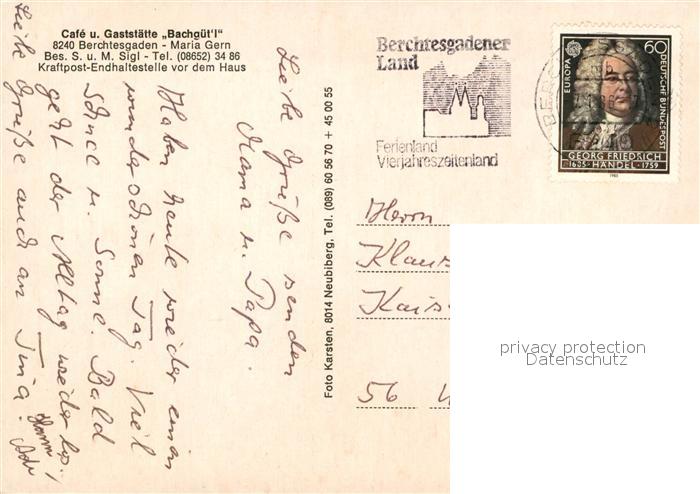 Café u. Gaststätte „Bachgüt'l"
8240 Berchtesgaden - Maria Gern
Bes. S. u. M. Sigl - Tel. (08652) 34 86
Kraftpost-Endhaltestelle vor dem Haus
Liebe Grüße senden
Mama u. Papa.
Haben heute wieder einen
wunderschönen Tag. Viel
Schnee u. Sonne. Bald
geht der Alltag wieder los.
Liebe Grüße auch an Tina!
Foto Karsten, 8014 Neubiberg, Tel. (089) 60 56 70 + 45 00 55
Berchtesgadener
Land
Ferienland
Vierjahreszeitenland
EUROPA
60
DEUTSCHE BUNDESPOST
GEORG FRIEDRICH
1685 · HÄNDEL · 1759
1985
Herrn
Klaus
Kais
56
privacy protection
Datenschutz